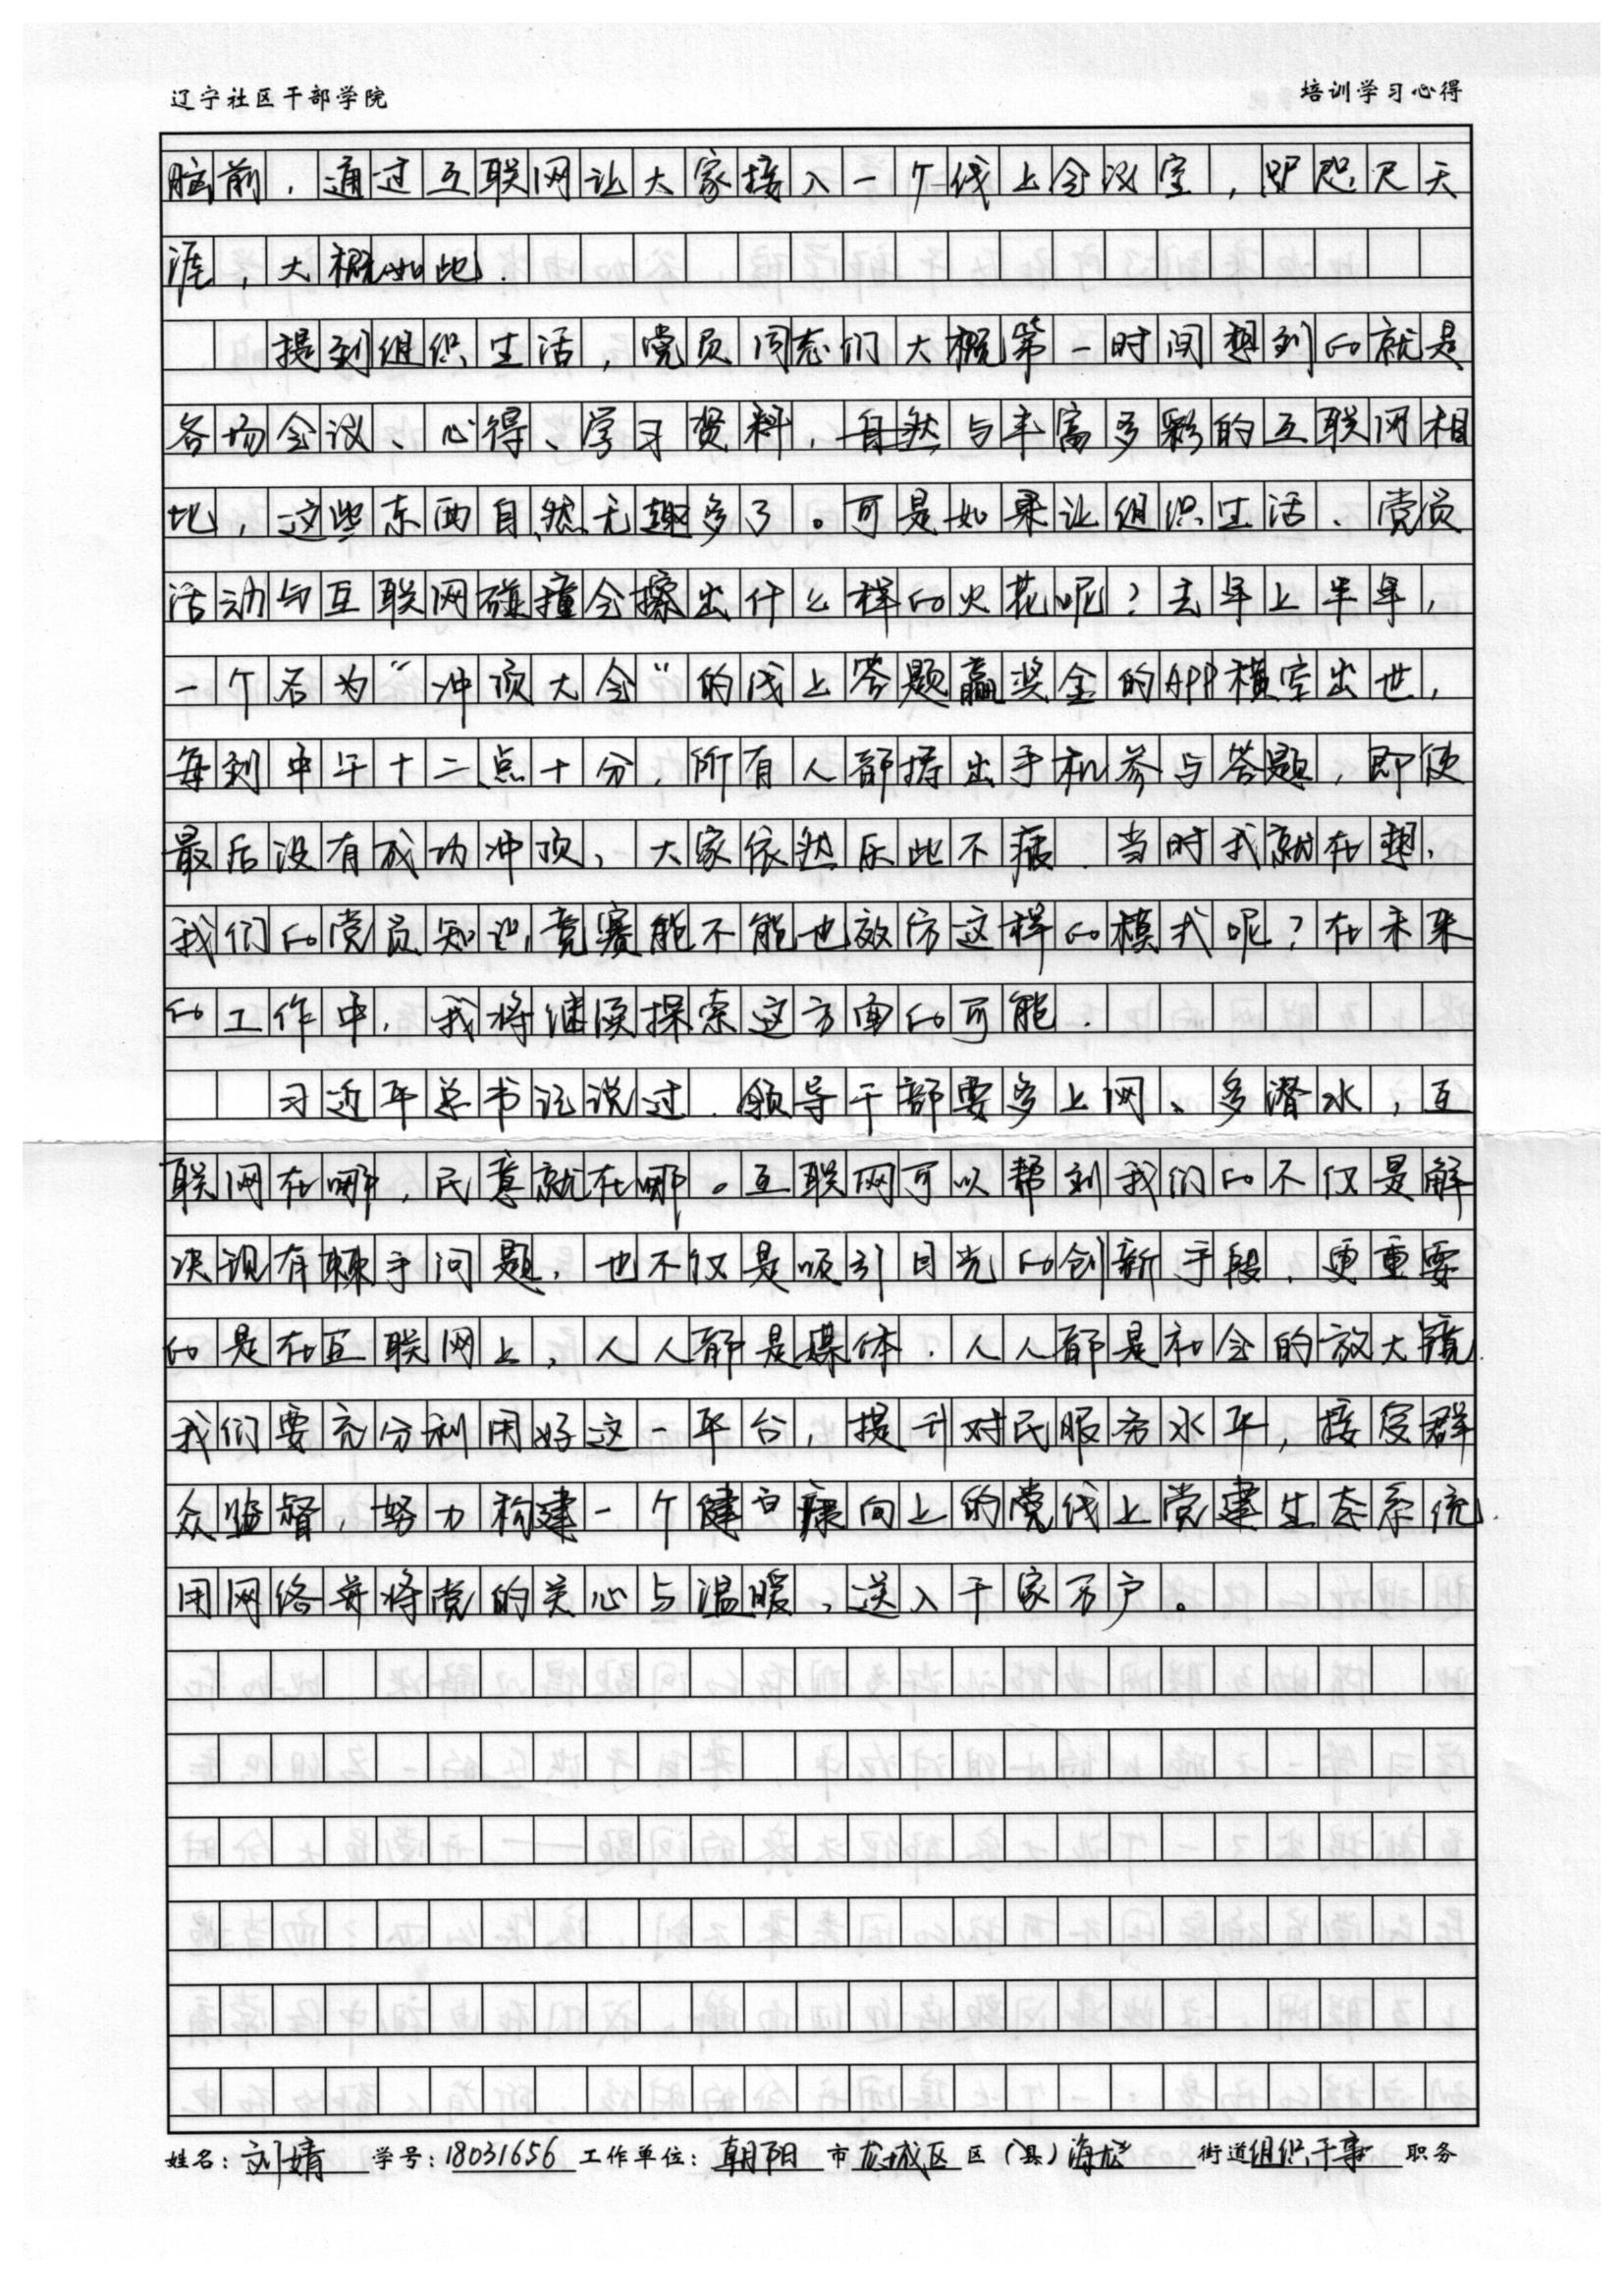 辽宁社区干部学院 培训学习心得
脑前，通过互联网让大家接入一个线上会议室，即咫尺天
涯，大概如此.
提到组织生活，党员同志们大概第一时间想到的就是
各场会议、心得、学习资料，自然与丰富多彩的互联网相
比，这些东西自然无趣多了。可是如果让组织生活、党员
活动与互联网碰撞会擦出什么样的火花呢？去年上半年，
一个名为“冲顶大会”的线上答题赢奖金的APP横空出世，
每到中午十二点十分，所有人都捧出手机参与答题，即使
最后没有成功冲顶，大家依然乐此不疲.当时我就在想，
我们的党员知识竞赛能不能也效仿这样的模式呢？在未来
的工作中，我将继续探索这方面的可能.
习近平总书记说过.领导干部要多上网、多潜水，互
联网在哪，民意就在哪。互联网可以帮到我们的不仅是解
决现有棘手问题，也不仅是吸引目光的创新手段，更重要
的是在互联网上，人人都是媒体.人人都是社会的放大镜.
我们要充分利用好这一平台，提升对民服务水平，接受群
众监督，努力构建一个健康向上的党线上党建生态系统.
用网络并将党的关心与温暖，送入千家万户。
姓名：刘婧 学号：18031656 工作单位：朝阳 市 龙城区 区（县）海龙 街道 组织干事 职务